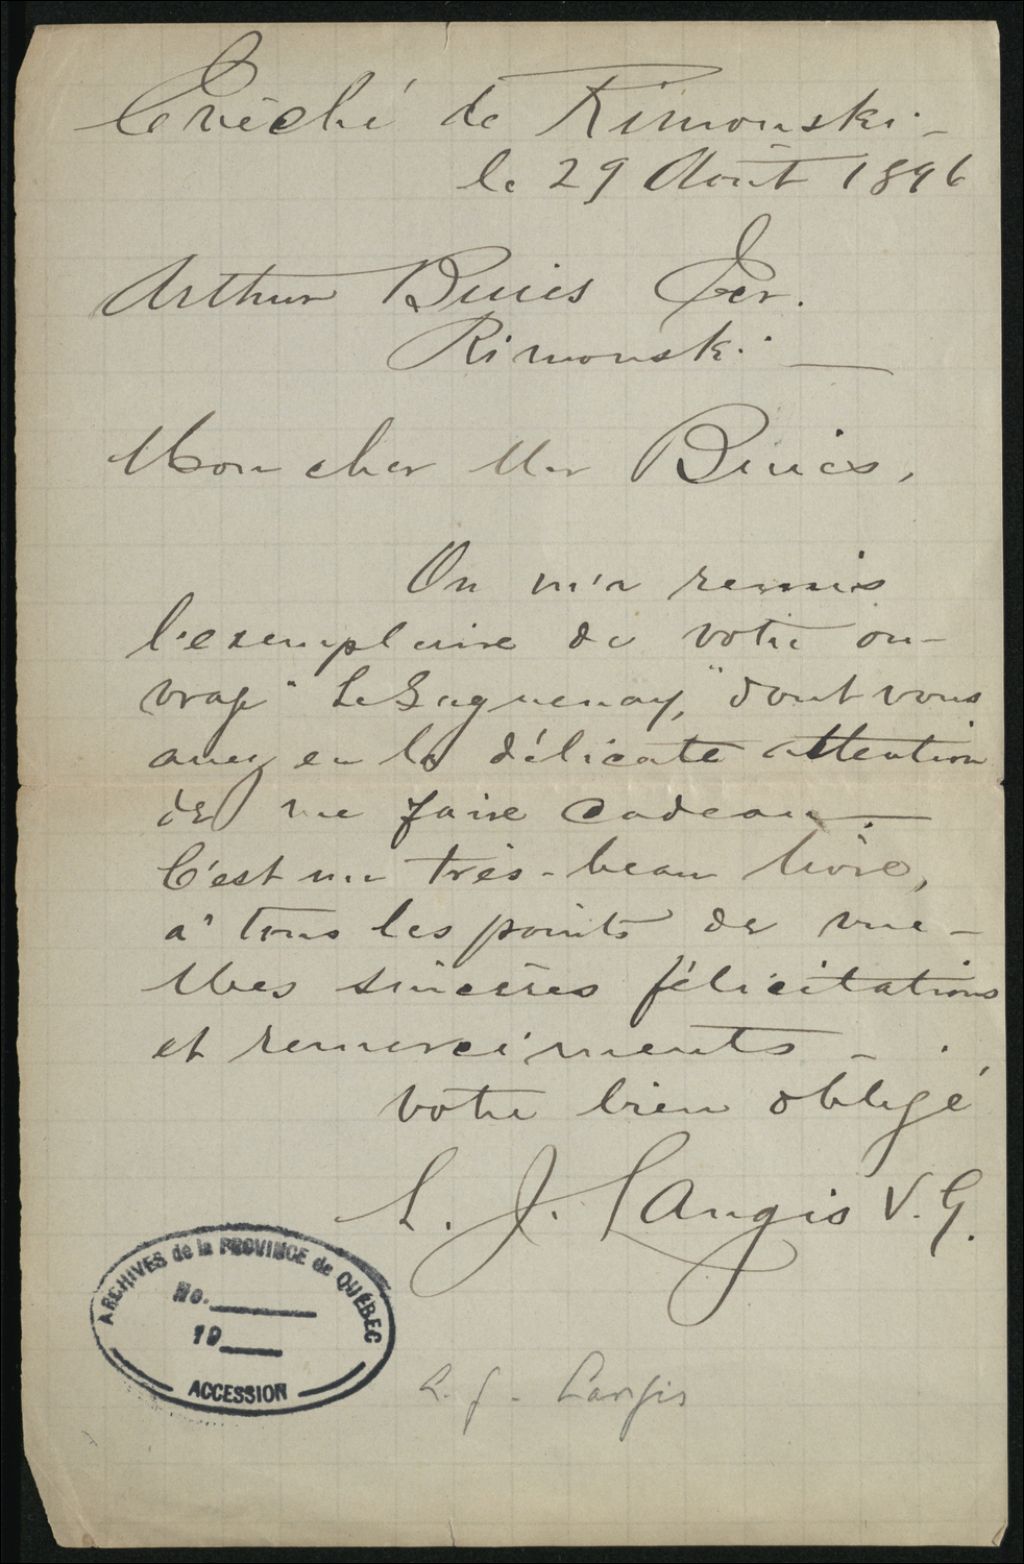 Evêché de Rimouski -
le 29 Août 1896
Arthur Buies Ecr.
Rimouski. —
Mon cher Mr Buies,
On m'a remis
l'exemplaire de votre ou-
vrage "Le Saguenay," dont vous
avez eu la délicate attention
de me faire cadeau. —
C'est un très-beau livre,
à tous les points de vue -
Mes sincères félicitations
et remerciments -
Votre bien obligé
L. J. Langis V. G.
ARCHIVES de la PROVINCE de QUÉBEC
No.
19
ACCESSION
L. J. Langis